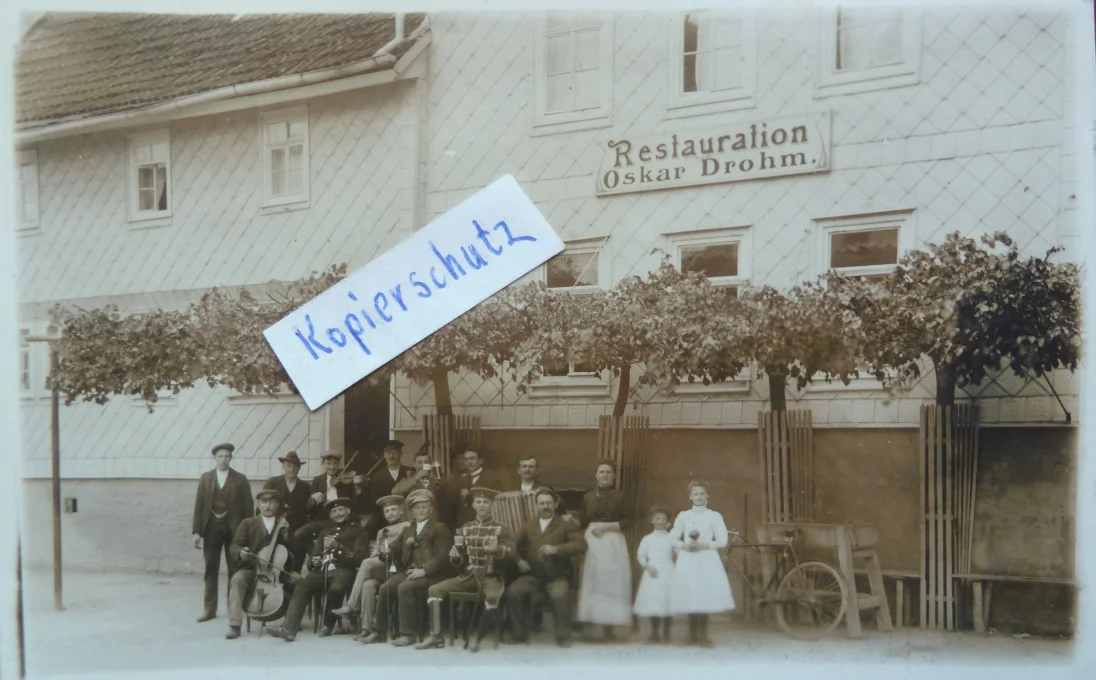 Restauration
Oskar Drohm.
Kopierschutz